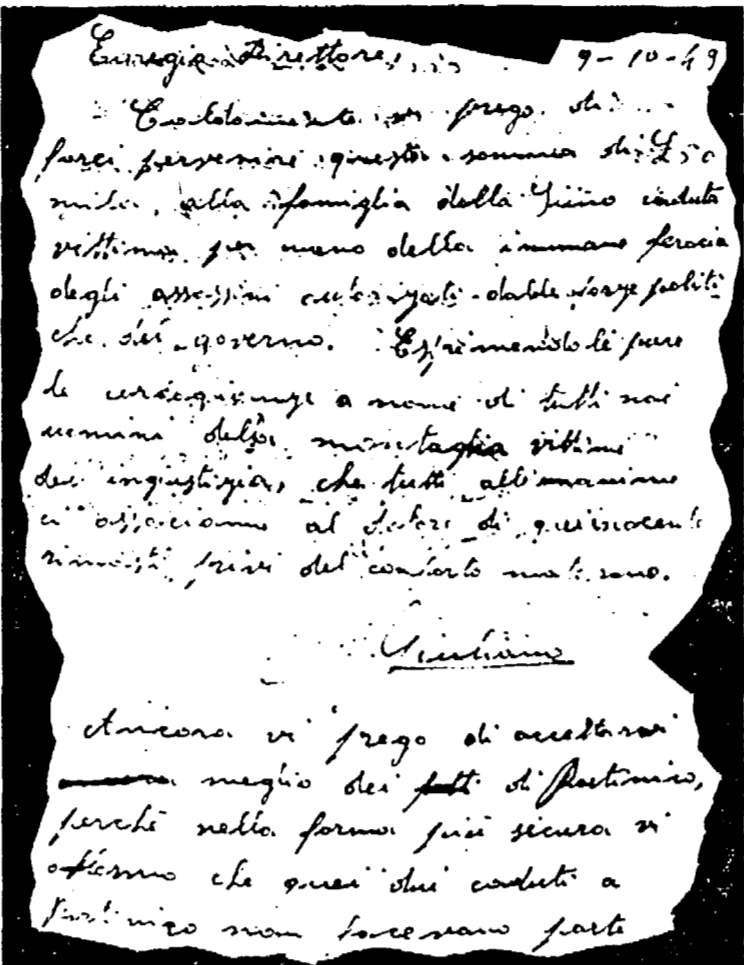 Egregio Direttore, 9-10-49
Caldamente vi prego di
farci pervenire questa somma di L 50
mila, alla famiglia della Giino caduta
vittima per mano della immane ferocia
degli assassini autorizzati dalle forze politi
che del governo. Esprimendole pure
le a nome di tutti noi
uomini della montaglia vittime
dei ingiustizia, che tutti all'unanime
ci associamo al dolore di quei inocenti
rimasti privi del conforto materno.
Giuliano
Ancora vi prego di accertarvi
meglio dei fatti di Partinico,
perchè nella forma più sicura vi
affermo che quei due caduti a
Partinico non facevano parte